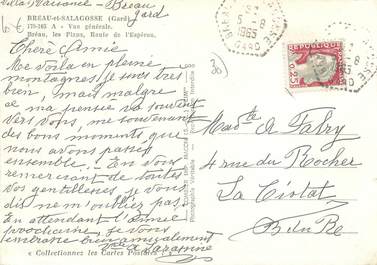 Bréau
Gard
6€
BREAU-et-SALAGOSSE (Gard)
179-165 A - Vue générale.
Bréau, les Plans, Route de l'Espérou.
Chère Amie
Me voila en pleine
montagnes je suis tres
bien, mais malgré
ça ma pensée va souvent
vers vous, me souvenant
des bons moments que
nous avons passés
ensemble. En vous
remerciant de toutes
vos gentillesses, je vous
dis ne m'oubliez pas.
En attendant l'année
prochaine, je vous
embrasse bien amicalement
« Collectionnez les Cartes Postales »
30
5-8
1965
GARD
REPUBLIQUE
0,25
Made A Fabry
4 rue du Rocher
La Ciotat
B du Rh